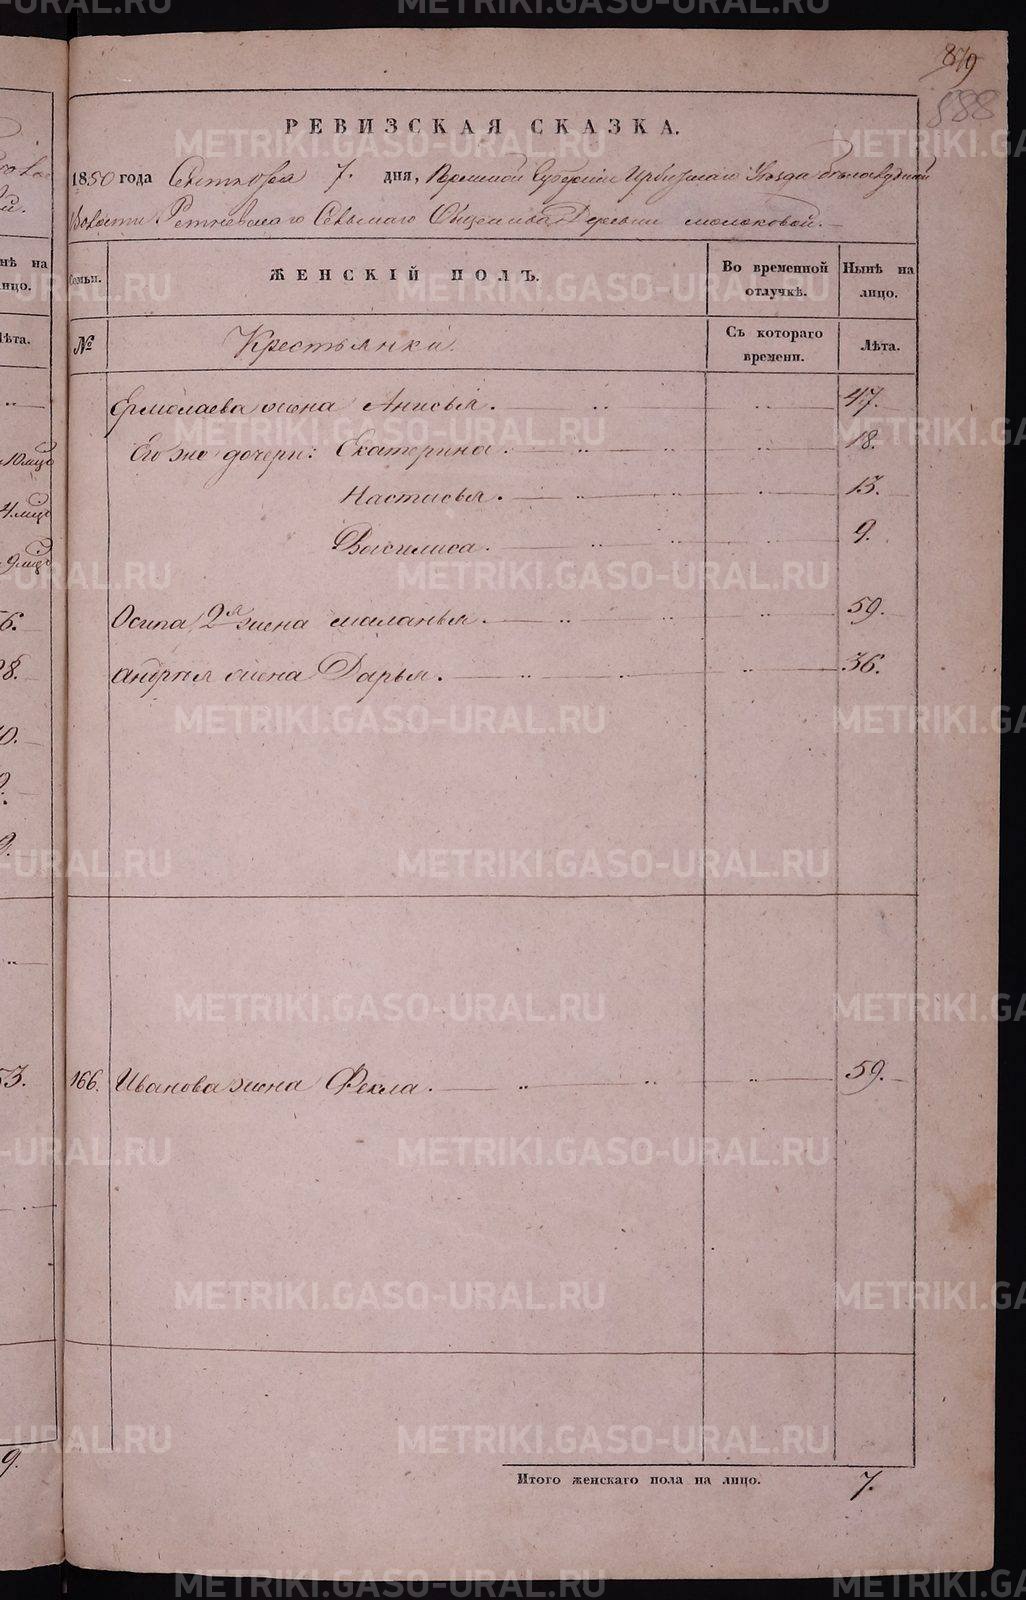 879
588
РЕВИЗСКАЯ СКАЗКА.
1850 года Сентября 7. дня, Пермской Губернiи Ирбитскаго Уѣзда Бѣлослудской
Волости Ретневскаго Сельскаго Общества Деревни молоковой.
Семьи. ЖЕНСКІЙ ПОЛЪ. Во временной отлучкѣ. Нынѣ на лицо.
№ Крестьянки. Съ котораго времени. Лѣта.
Ермолаева жена Анисья. 47.
Его же дочери: Екатерина. 18.
Настасья. 13.
Василиса. 9.
Осипа 2я жена маланья. 59.
андрея жена Дарья. 36.
166. Иванова жена Фекла. 59.
Итого женскаго пола на лицо. 7.
нѣ на
лицо.
Лѣта.
10 мцъ
4 мцъ
9 мцъ
6.
28.
53.
9.
METRIKI.GASO-URAL.RU